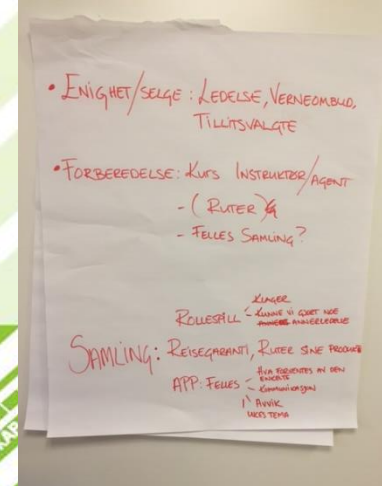 • ENIGHET/SELGE: LEDELSE, VERNEOMBUD,
TILLITSVALGTE
• FORBEREDELSE: KURS INSTRUKTØR/AGENT
- (RUTER)
- FELLES SAMLING?
KLAGER
ROLLESPILL - KUNNE VI GJORT NOE
ANNERLEDELSE
SAMLING: REISEGARANTI, RUTER SINE PRODUKTER
HVA FORVENTES AV DEN
ENKELTE
APP: FELLES - KOMMUNIKASJON
AVVIK
UKES TEMA
KAP